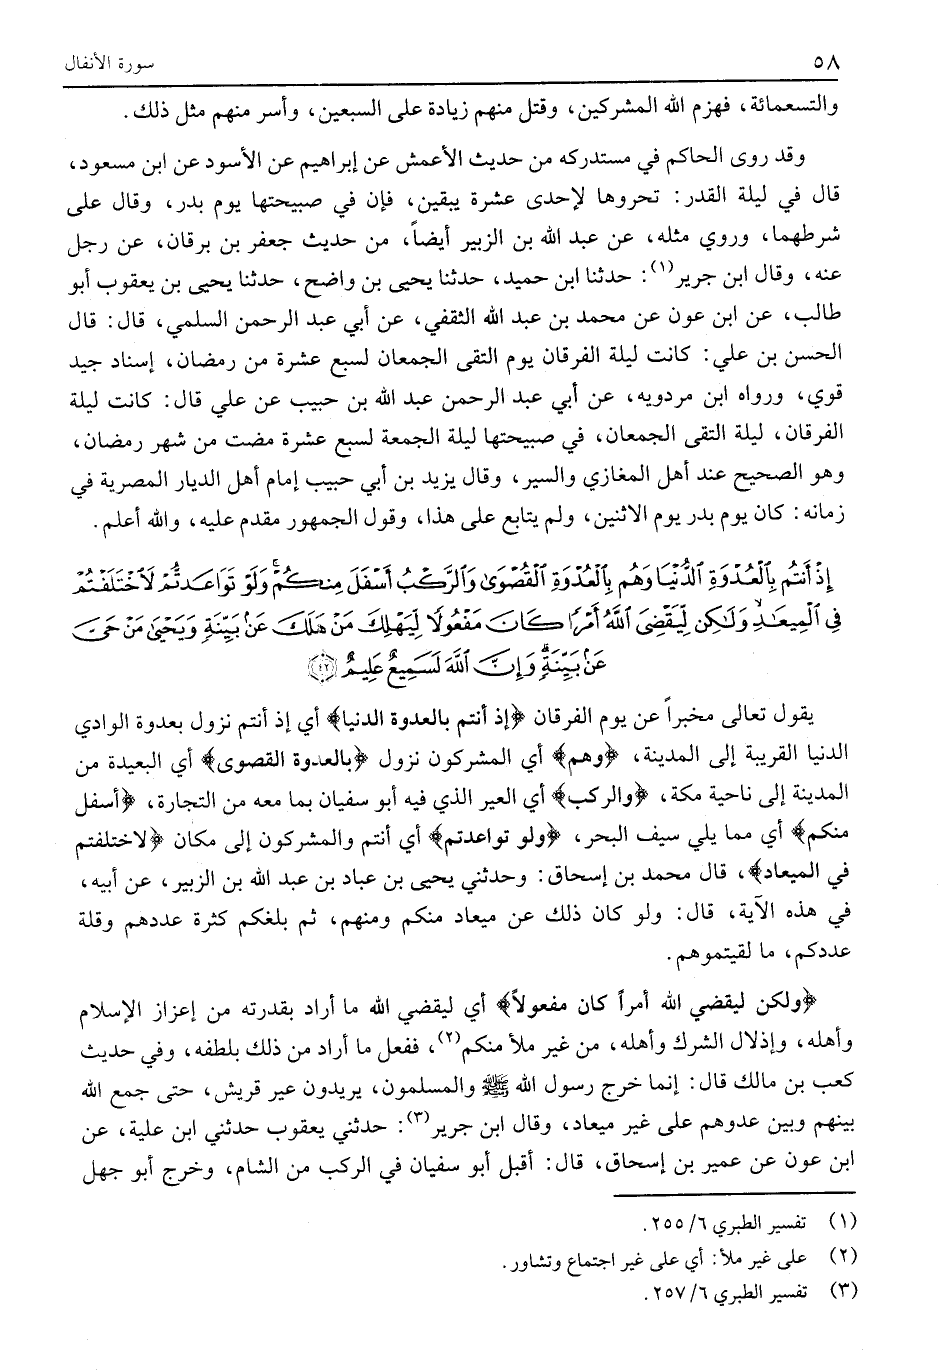 ٥٨ سورة الأنفال
والتسعمائة، فهزم الله المشركين، وقتل منهم زيادة على السبعين، وأسر منهم مثل ذلك.
وقد روى الحاكم في مستدركه من حديث الأعمش عن إبراهيم عن الأسود عن ابن مسعود،
قال في ليلة القدر: تحروها لإحدى عشرة يبقين، فإن في صبيحتها يوم بدر، وقال على
شرطهما، وروي مثله، عن عبد الله بن الزبير أيضاً، من حديث جعفر بن برقان، عن رجل
عنه، وقال ابن جرير(١): حدثنا ابن حميد، حدثنا يحيى بن واضح، حدثنا يحيى بن يعقوب أبو
طالب، عن ابن عون عن محمد بن عبد الله الثقفي، عن أبي عبد الرحمن السلمي، قال: قال
الحسن بن علي: كانت ليلة الفرقان يوم التقى الجمعان لسبع عشرة من رمضان، إسناد جيد
قوي، ورواه ابن مردويه، عن أبي عبد الرحمن عبد الله بن حبيب عن علي قال: كانت ليلة
الفرقان، ليلة التقى الجمعان، في صبيحتها ليلة الجمعة لسبع عشرة مضت من شهر رمضان،
وهو الصحيح عند أهل المغازي والسير، وقال يزيد بن أبي حبيب إمام أهل الديار المصرية في
زمانه: كان يوم بدر يوم الاثنين، ولم يتابع على هذا، وقول الجمهور مقدم عليه، والله أعلم.
إِذْ أَنتُم بِالْعُدْوَةِ الدُّنْيَا وَهُم بِالْعُدْوَةِ الْقُصْوَىٰ وَالرَّكْبُ أَسْفَلَ مِنكُمْ ۚ وَلَوْ تَوَاعَدتُّمْ لَاخْتَلَفْتُمْ
فِي الْمِيعَادِ ۙ وَلَٰكِن لِّيَقْضِيَ اللَّهُ أَمْرًا كَانَ مَفْعُولًا لِّيَهْلِكَ مَنْ هَلَكَ عَن بَيِّنَةٍ وَيَحْيَىٰ مَنْ حَيَّ
عَن بَيِّنَةٍ ۗ وَإِنَّ اللَّهَ لَسَمِيعٌ عَلِيمٌ ﴿٤٢﴾
يقول تعالى مخبراً عن يوم الفرقان ﴿إذ أنتم بالعدوة الدنيا﴾ أي إذ أنتم نزول بعدوة الوادي
الدنيا القريبة إلى المدينة، ﴿وهم﴾ أي المشركون نزول ﴿بالعدوة القصوى﴾ أي البعيدة من
المدينة إلى ناحية مكة، ﴿والركب﴾ أي العير الذي فيه أبو سفيان بما معه من التجارة، ﴿أسفل
منكم﴾ أي مما يلي سيف البحر، ﴿ولو تواعدتم﴾ أي أنتم والمشركون إلى مكان ﴿لاختلفتم
في الميعاد﴾، قال محمد بن إسحاق: وحدثني يحيى بن عباد بن عبد الله بن الزبير، عن أبيه،
في هذه الآية، قال: ولو كان ذلك عن ميعاد منكم ومنهم، ثم بلغكم كثرة عددهم وقلة
عددكم، ما لقيتموهم.
﴿ولكن ليقضي الله أمراً كان مفعولاً﴾ أي ليقضي الله ما أراد بقدرته من إعزاز الإسلام
وأهله، وإذلال الشرك وأهله، من غير ملأ منكم(٢)، ففعل ما أراد من ذلك بلطفه، وفي حديث
كعب بن مالك قال: إنما خرج رسول الله ﷺ والمسلمون، يريدون عير قريش، حتى جمع الله
بينهم وبين عدوهم على غير ميعاد، وقال ابن جرير(٣): حدثني يعقوب حدثني ابن علية، عن
ابن عون عن عمير بن إسحاق، قال: أقبل أبو سفيان في الركب من الشام، وخرج أبو جهل
(١) تفسير الطبري ٦/ ٢٥٥.
(٢) على غير ملأ: أي على غير اجتماع وتشاور.
(٣) تفسير الطبري ٦/ ٢٥٧.